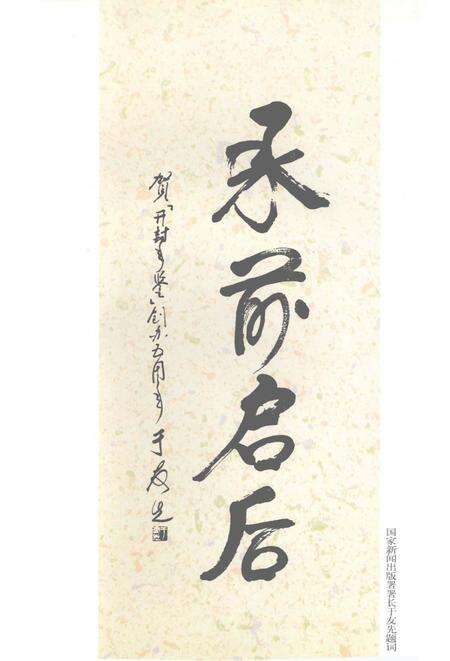 承前启后
贺《开封年鉴》创办五周年 于友先
国家新闻出版署署长于友先题词